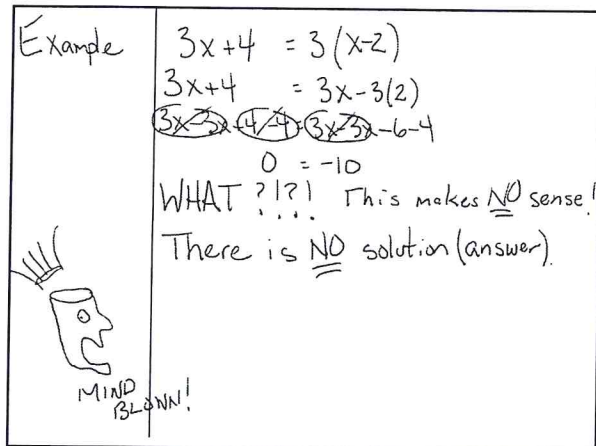 Example
3x+4 = 3(x-2)
3x+4 = 3x-3(2)
3x-3x+4-4=3x-3x-6-4
0 = -10
WHAT ?!?! This makes NO sense!
There is NO solution (answer).
MIND
BLOWN!